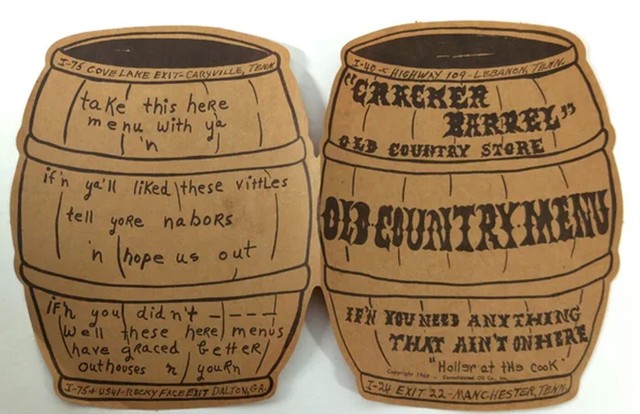 I-75 COVE LAKE EXIT-CARYVILLE, TENN.
take this here
menu with ya
'n
if'n ya'll liked these vittles
tell yore nabors
'n hope us out
if'n you didn't - - - -
well these here menus
have graced better
outhouses 'n yourn
I-75 & US41-ROCKY FACE EXIT DALTON, GA.
I-40 & HIGHWAY 109-LEBANON, TENN.
"CRACKER
BARREL"
OLD COUNTRY STORE
OLD COUNTRY MENU
IF'N YOU NEED ANYTHING
THAT AIN'T ON HERE
"Holler at the cook"
Copyright 1969
I-24 EXIT 22-MANCHESTER, TENN.